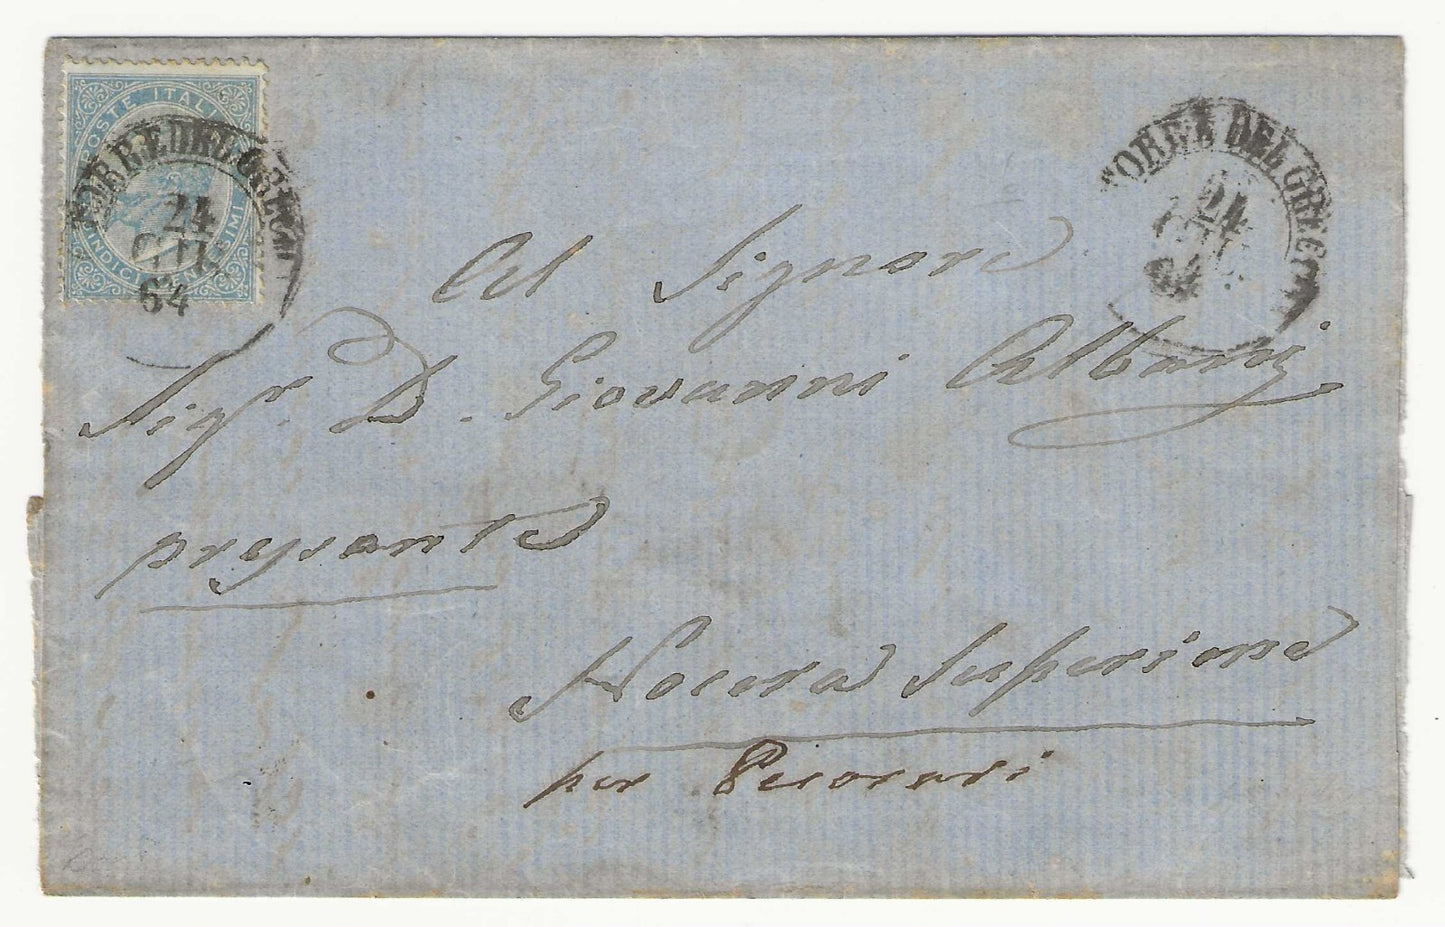 POSTE ITAL
QUINDICI CENTESIMI
TORRE DEL GRECO
24
GIU
64
TORRE DEL GRECO
24
64
Al Signore
Sigr D. Giovanni Albanj
pressante
Nocera Superiore
per Pecorari